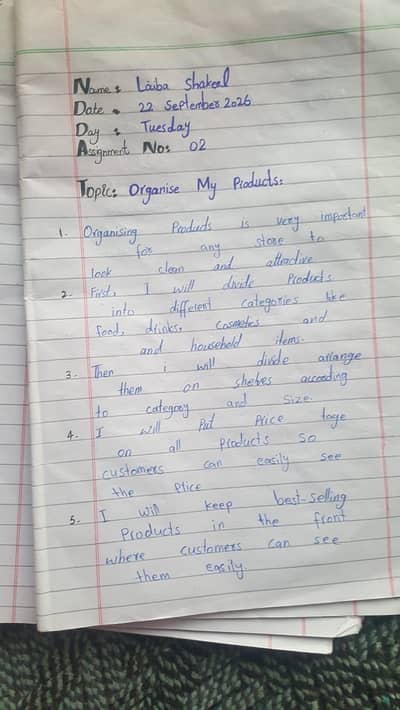 Name: Laiba Shakeel
Date: 22 September 2026
Day: Tuesday
Assignment No: 02
Topic: Organise My Products:
1. Organising Products is very important
for any store to
look clean and attractive
2. First, I will divide Products
into different categories like
food, drinks, cosmetics and
and household items.
3. Then i will divide arrange
them on shelves according
to category and size.
4. I will Put Price tage
on all Products so
customers can easily see
the Price
5. I will keep best-selling
Products in the front
where customers can see
them easily.